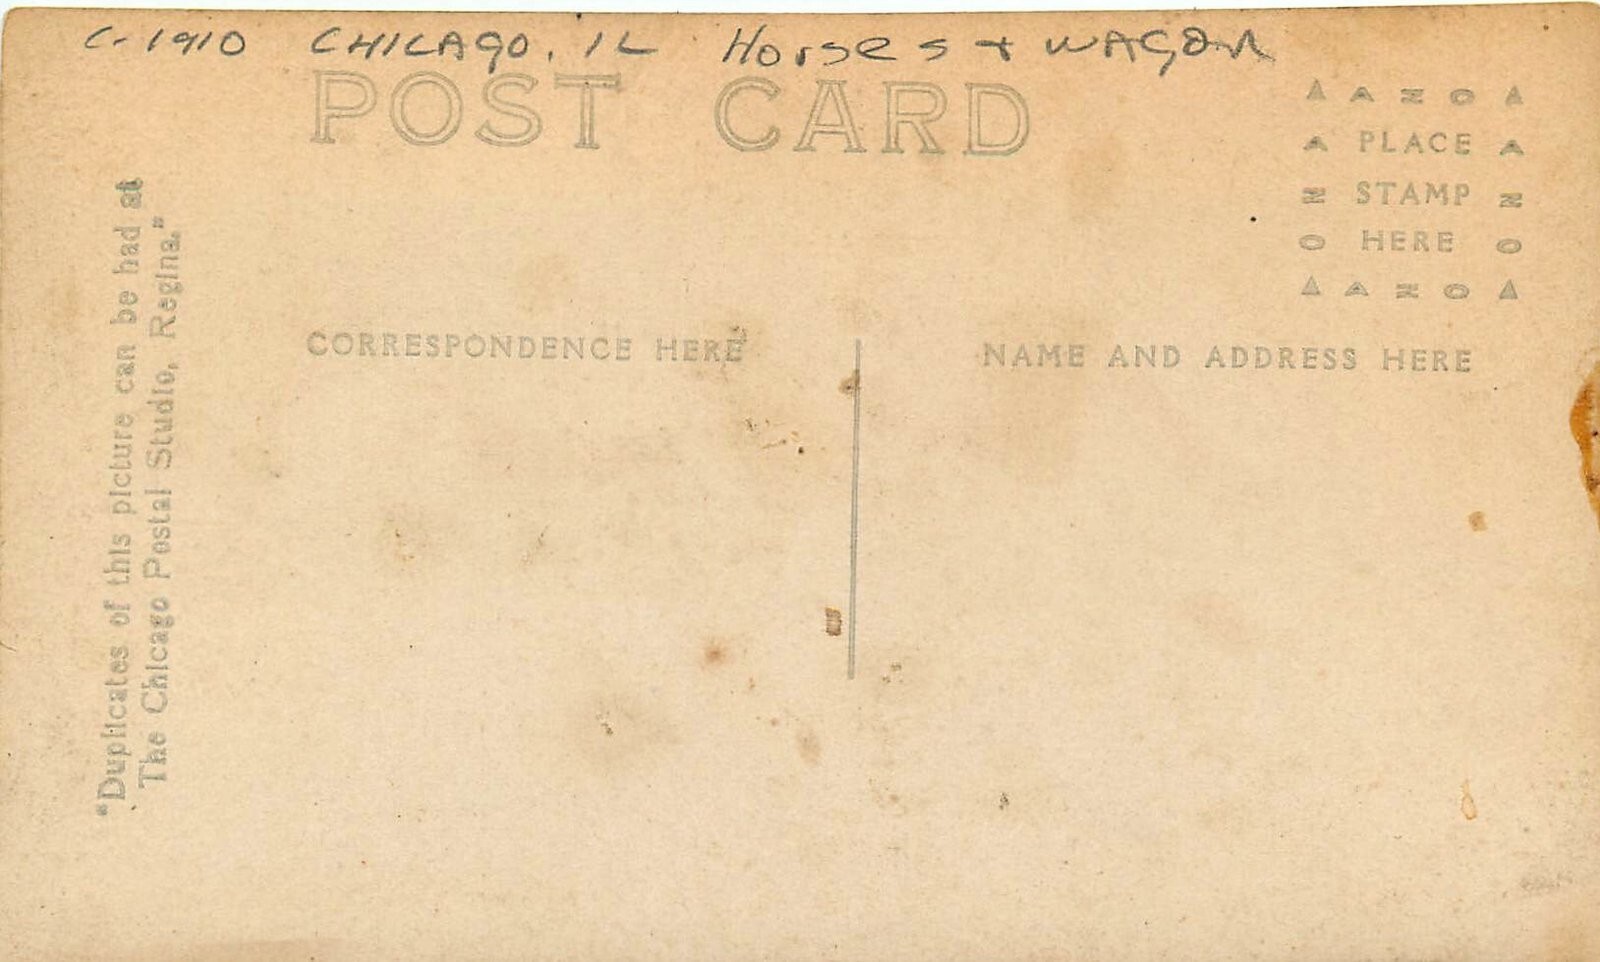 C-1910 CHICAGO, IL Horses + WAGON
POST CARD
AZO
A PLACE A
Z STAMP Z
O HERE O
AZO
"Duplicates of this picture can be had at
The Chicago Postal Studio, Regina."
CORRESPONDENCE HERE
NAME AND ADDRESS HERE